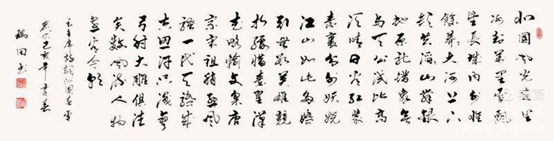 北國風光千里
冰封萬里雪飄
望長城內外惟
餘莽莽大河上下
頓失滔滔山舞銀
蛇原馳蠟象欲
與天公試比高
須晴日看紅裝
素裹分外妖嬈
江山如此多嬌
引無數英雄競
折腰惜秦皇漢
武略輸文采唐
宗宋祖稍遜風
騷一代天驕成
吉思汗只識彎
弓射大雕俱往
矣數風流人物
還看今朝
毛主席詩詞沁園春雪